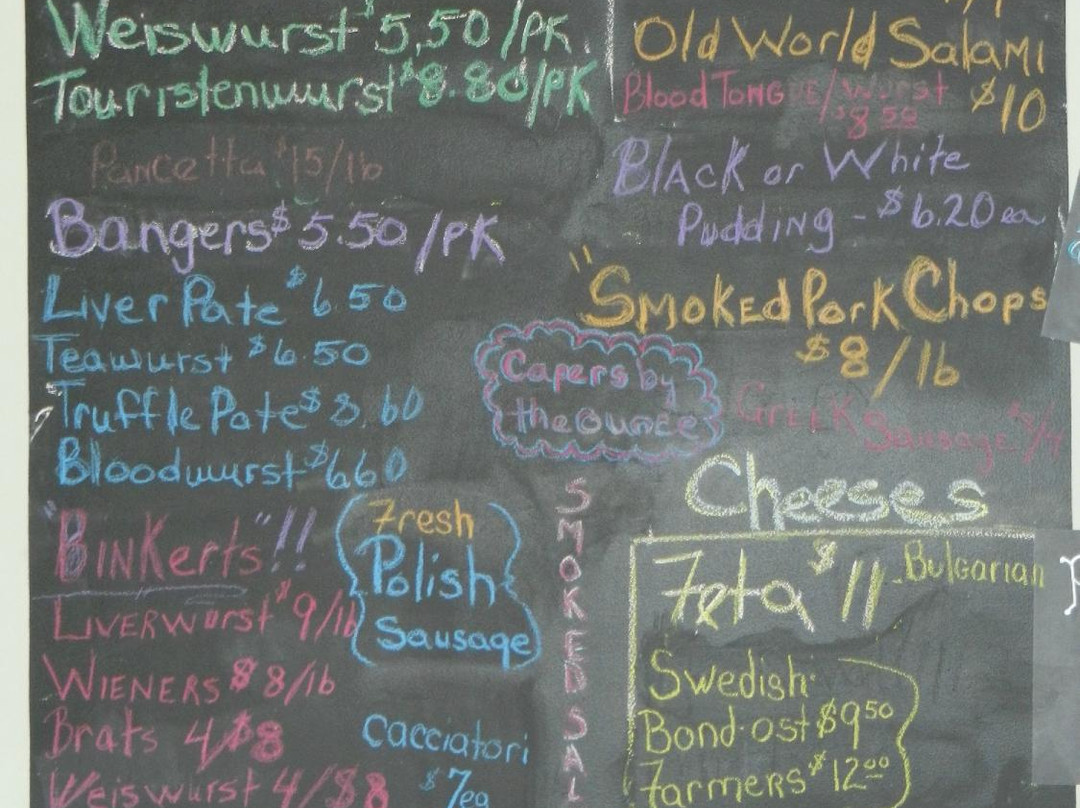 Weiswurst $5.50/PK.
Touristenwurst $8.80/PK
Pancetta $15/lb
Bangers $5.50/PK
Liver Pate $6.50
Teawurst $6.50
Truffle Pate $8.60
Bloodwurst $6.60
"BINKerts"!!
LIVERWurst $9/lb
WIENERS $8/lb
Brats 4/$8
Weiswurst 4/$8
Fresh
Polish
Sausage
Cacciatori
$7ea
Capers by
the Ounce
SMOKED SAL
Old World Salami
$10
Blood TONGUE/Wurst
$8.50
Black or White
Pudding - $6.20 ea
"Smoked Pork Chops
$8/lb
GREEK Sausage
Cheeses
Feta $11 - Bulgarian
Swedish
Bond-ost $9.50
Farmers $12.00